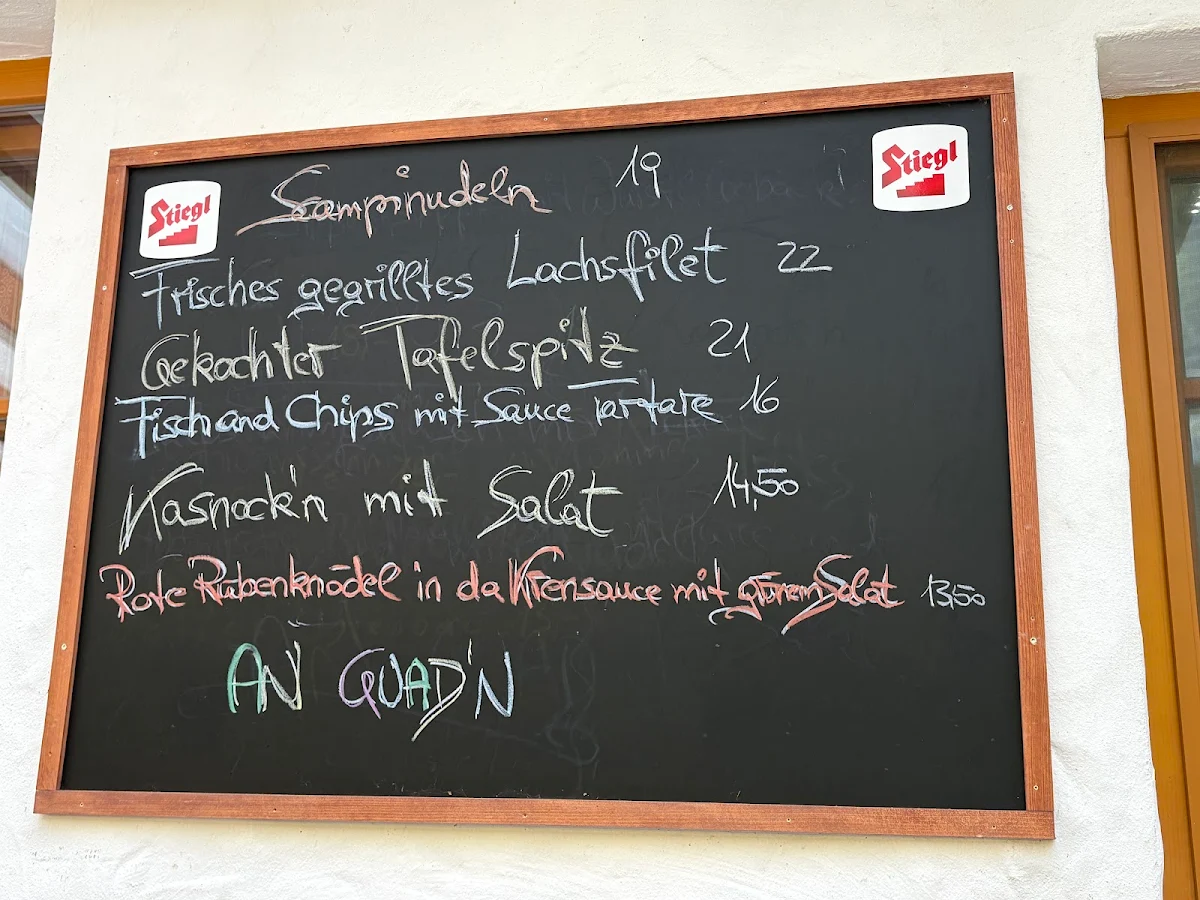 Stiegl
Stiegl
Scampinudeln 19
Frisches gegrilltes Lachsfilet 22
Gekochter Tafelspitz 21
Fisch and Chips mit Sauce tartare 16
Kasnock'n mit Salat 14,50
Rote Rübenknödel in da Krensauce mit grünem Salat 13,50
AN GUAD'N